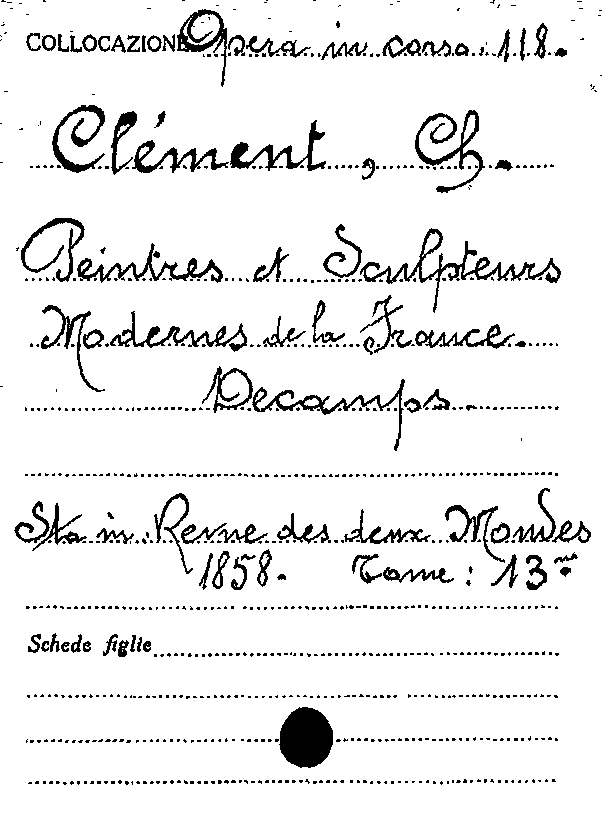 COLLOCAZIONE Opera in corso. 118.
Clément, Ch.
Peintres et Sculpteurs
Modernes de la France.
Decamps.
Sta in. Revue des deux Mondes
1858. Tome: 13me
Schede figlie